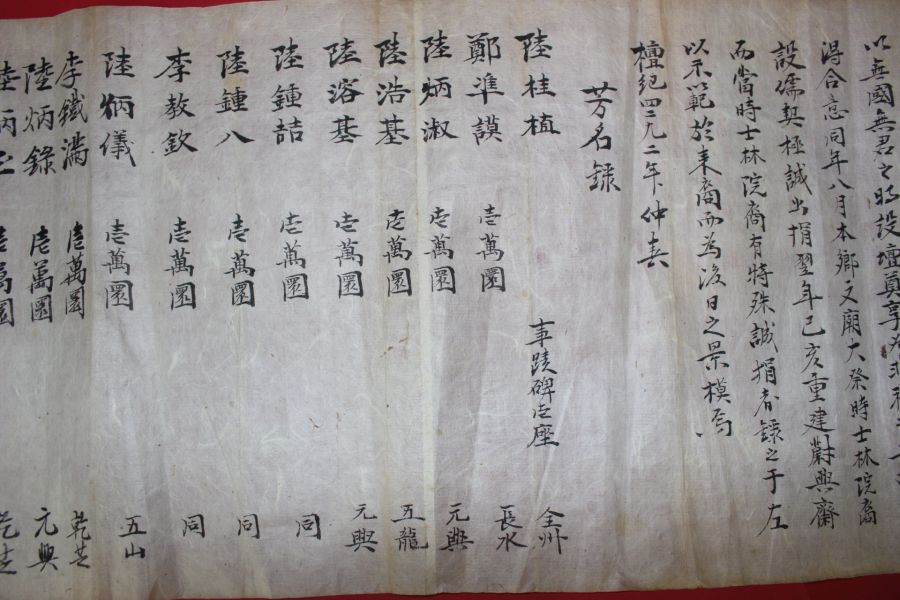 以無國無君之時設壇奠享
得合意同年八月本鄉文廟大祭時士林院裔
設儒契極誠出捐翌年己亥重建蔚興齋
而當時士林院裔有特殊誠捐者錄之于左
以示範於來裔而為後日之景模焉
檀紀四二九二年 仲春
芳名錄
陸桂植 事蹟碑壱座 全州
鄭準謨 壱萬圜 長水
陸炳淑 壱萬圜 元興
陸浩基 壱萬圜 五龍
陸溶基 壱萬圜 元興
陸鍾喆 壱萬圜 同
陸鍾八 壱萬圜 同
李教欽 壱萬圜 同
陸炳儀 壱萬圜 五山
李鐵滿 壱萬圜 乾芝
陸炳錄 壱萬圜 元興
陸炳 壱萬圜 乾芝